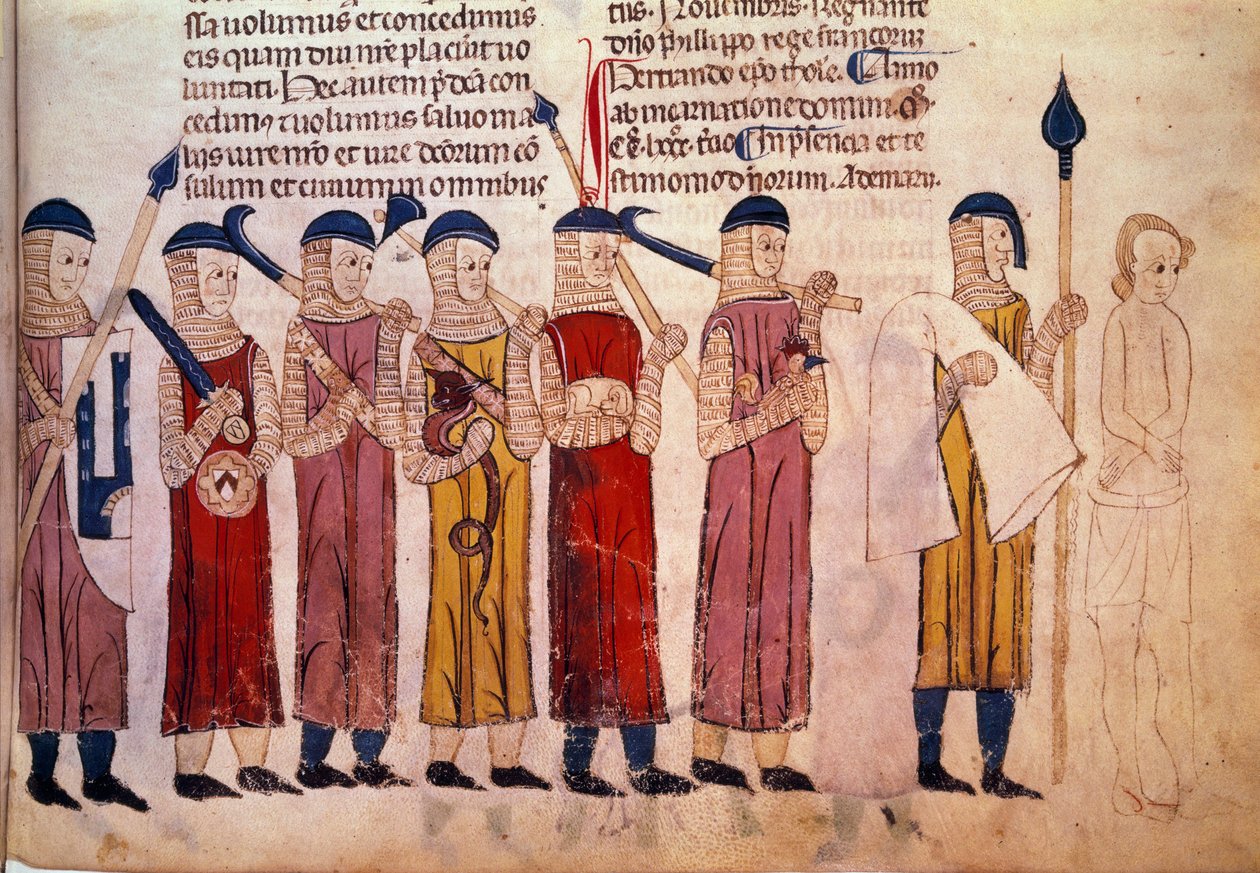 ssa uolumus et concedimus
eis quam diu nr̄e placūit uo
luntati. Hec autem p̄dc̄a con
cedim⁹ ⁊ uolumus saluo in a
lijs iure nr̄o et iure dc̄orum cō
sulum et ciuium in omnibus
tus. Nouembris. Regnante
dn̄o phyllippo rege francorum
Bertrando ep̄o thol̄e. Anno
ab incarnatione domini. M̊.
CC̊. lxxx̊. t̄cio In p̄sencia et te
stimonio dn̄orum. Ademarii.